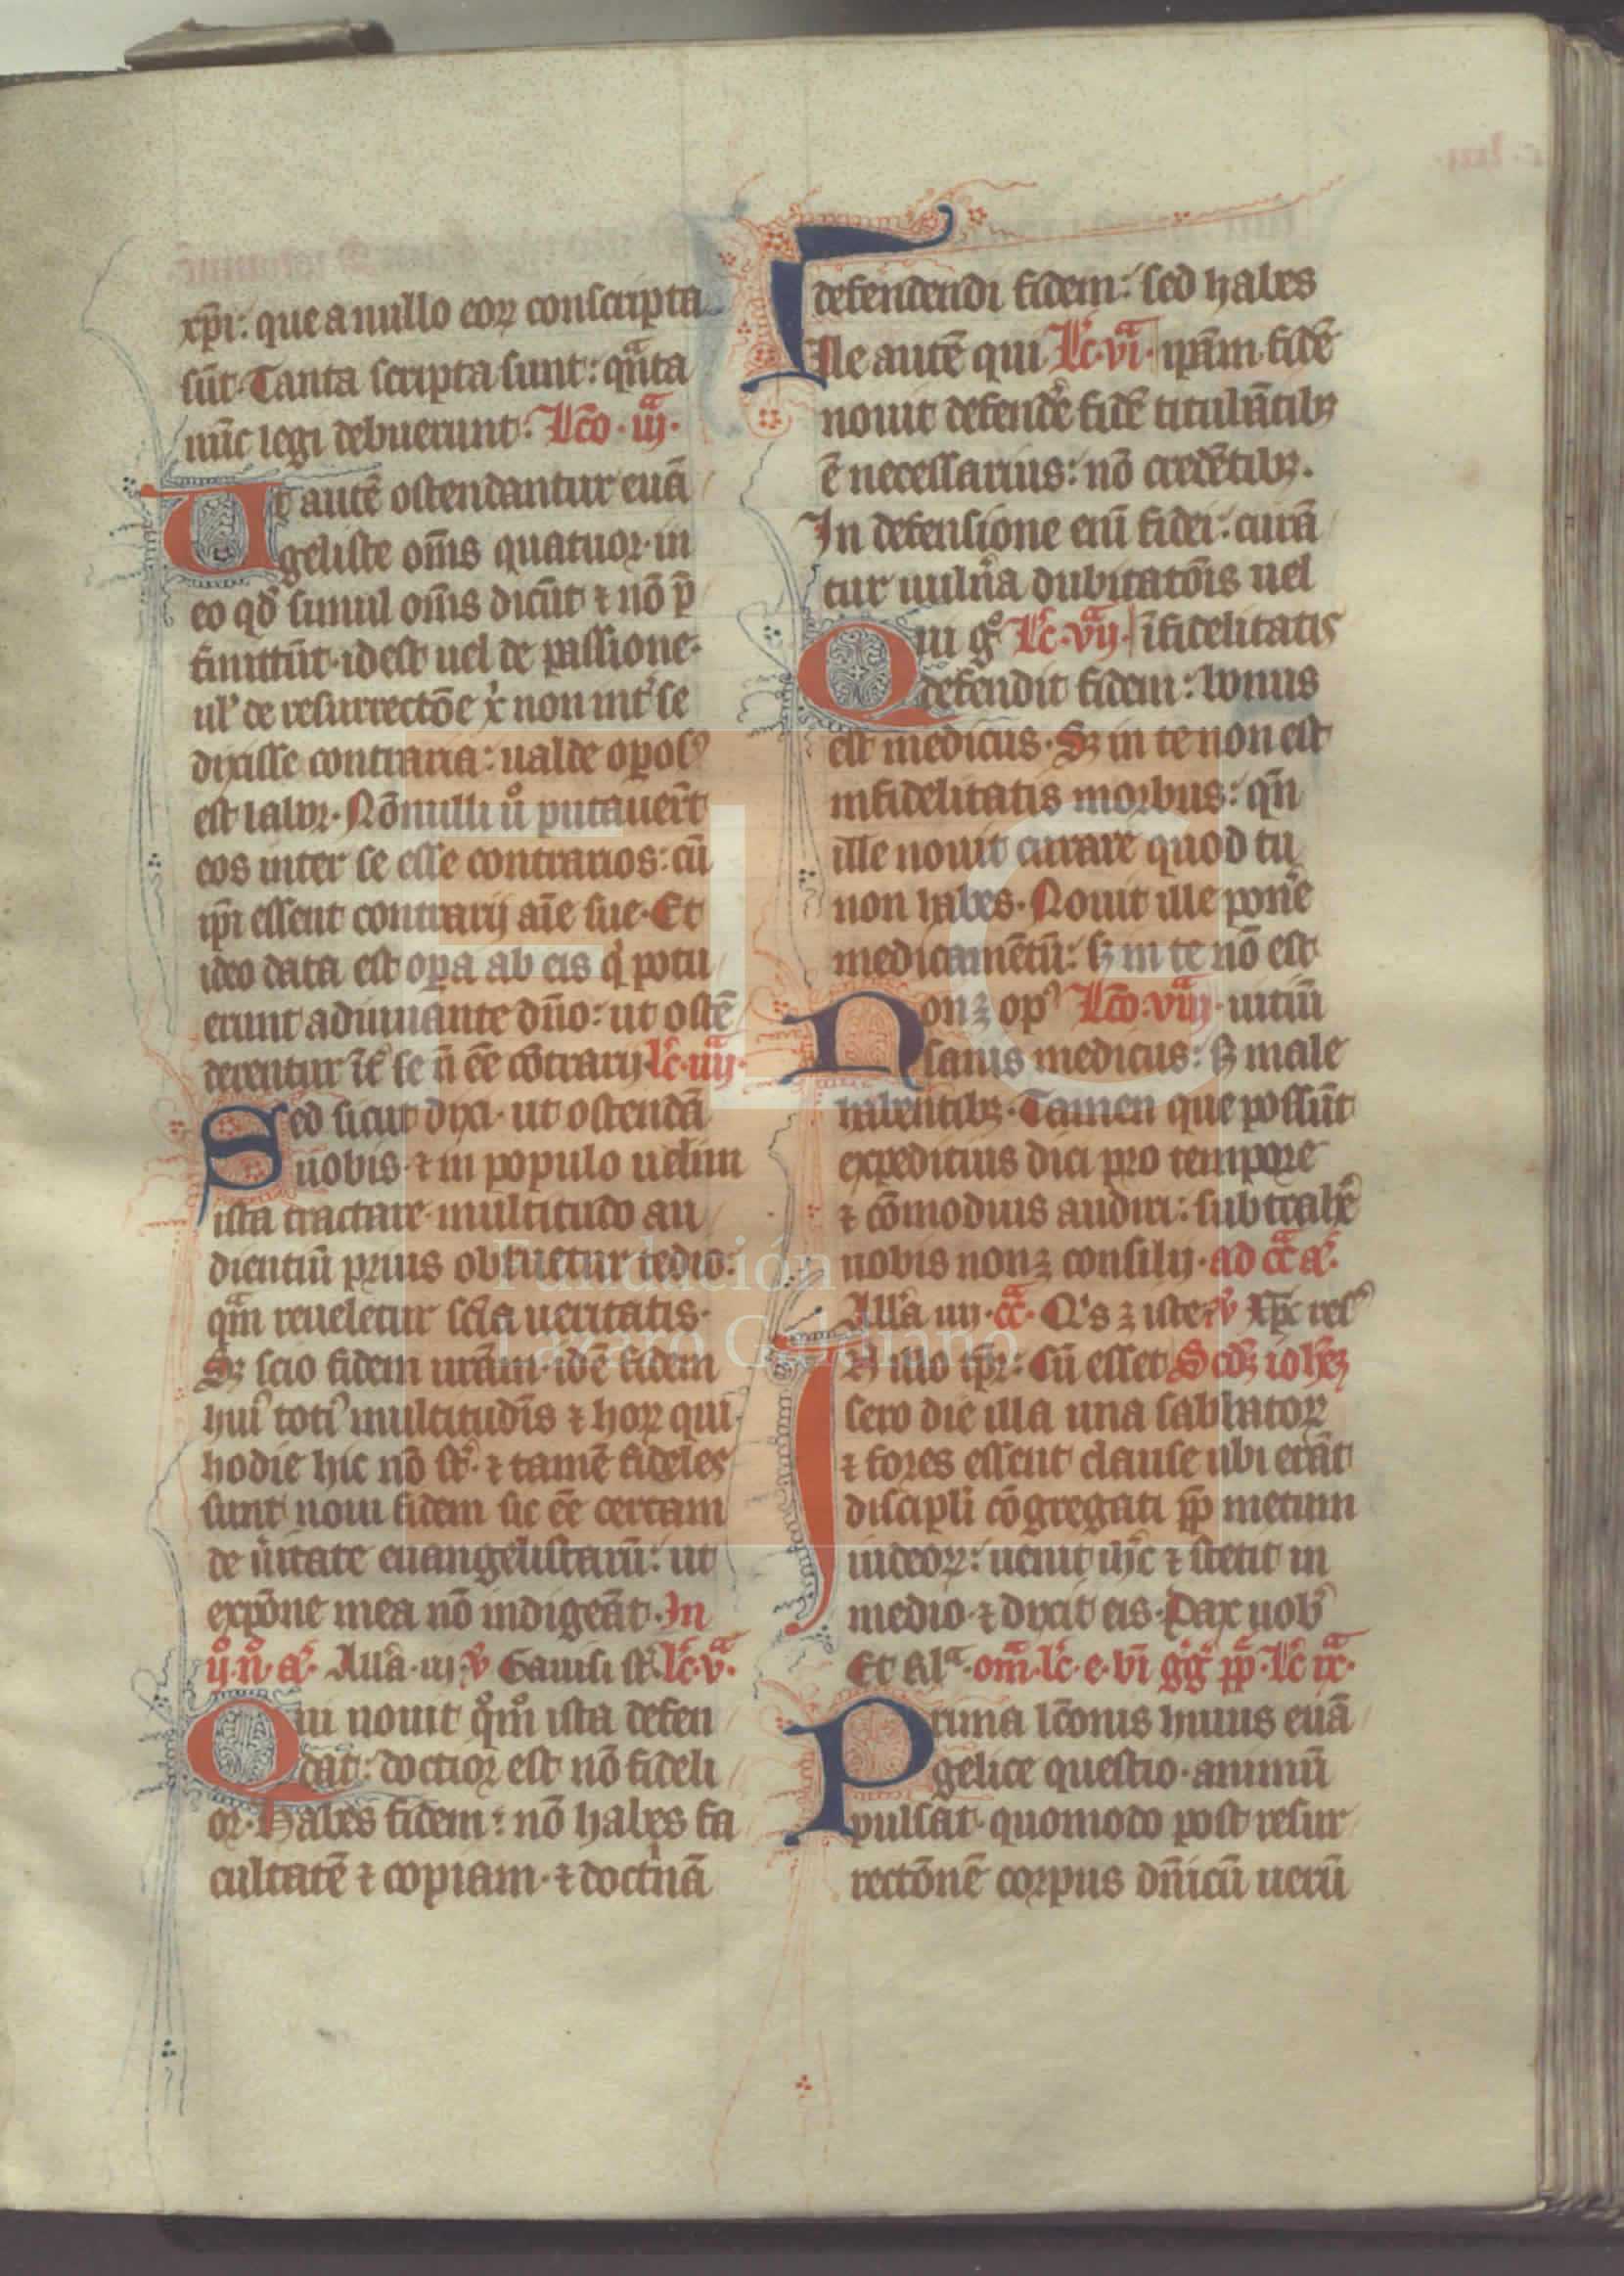 xp̄i: que a nullo eoꝝ conscripta
sūt. Tanta scripta sunt: qͣnta
nūc legi debuerunt. Lc̄o. iijͣ.
Ut autē ostendantur euā
geliste om̄s quatuor. in
eo qd̓ simul om̄s dicūt ⁊ nō p̄
t̓mittūt. idest uel de passione.
ul̓ de resurrectōe x̓ non int̓ se
dixisse contraria: ualde op̲osꝰ
est labor. Nōnulli ů putauer̄t
eos inter se esse contrarios: cū
ip̄i essent contrarij aīe sue. Et
ideo data est op̲a ab eis q̓ potu
erunt adiuuante dn̄o: ut ostē
derentur īt̓ se n̄ ēe cōtrarij. lc̄. iiijͣ.
Sed sicut dixi. ut ostendā
uobis. ⁊ in populo uelim
ista tractare. multitudo au
dientiū prius obruetur tedio:
qͣm reueletur sc̄la ueritatis.
Sꝫ scio fidem urām. idē fidem
huiꝰ totiꝰ multitudīs ⁊ hoꝝ qui
hodie hic nō st̄. ⁊ tamē fideles
sunt noui fidem sic ēe certam
de u̓itate euangelistarū: ut
expōne mea nō indigeāt. In
ij̊. n̊. aͨ. All̓a. iij. v̓ Gauisi st̄. lc̄. vͣ.
Qui nouit q̊m̊ ista defen
dat: doctior est nō fideli
or. Habes fidem: nō habes fa
cultatē ⁊ copiam. ⁊ doct̓nā
defendendi fidem: sed habes
Ille autē qui Lc̄. viͣ. ip̄am fidē
nouit defendē fidē titubātibꝫ
ē necessarius: nō credētibꝫ.
In defensione enī fidei: curā
tur uuln̓a dubitatōis uel
Qui gͦ Lc̄. vijͣ. īfidelitatis
defendit fidem: bonus
est medicus. Sꝫ in te non est
infidelitatis morbus: qn̄
ille nouit curare quod tu
non habes. Nouit ille pon̓e
medicamētū: sꝫ in te nō est
Non ē opꝰ Lc̄o. viijͣ. uitiū
sanis medicus: sꝫ male
habentibꝫ. Tamen que possūt
expeditius dici pro tempore
⁊ cōmodius audiri: subtrah̓e
nobis non ē consilij. ad cc̄ aͨ.
All̓a iiij. cc̄. Qͥs ē iste v̓ Xp̄c resꝰ
N illo tp̄r: Cū esset Scd̄ꝫ ioh̄eꝫ
sero die illa una sabbatoꝝ
⁊ fores essent clause ubi erāt
discipli cōgregati pp̄ metum
iudeoꝝ: uenit ih̄c ⁊ stetit in
medio. ⁊ dixit eis. Pax uobꝰ
Et rl̓ͣ. om̄. lc̄. e. bī gͥg̓ pp̄. Lc̄ ixͣ.
Prima lc̄onis huius euā
gelice questio. animū
pulsat. quomodo post resur
rectōnē corpus dn̄icū uerū
FLG
Fundación
Lázaro Galdiano